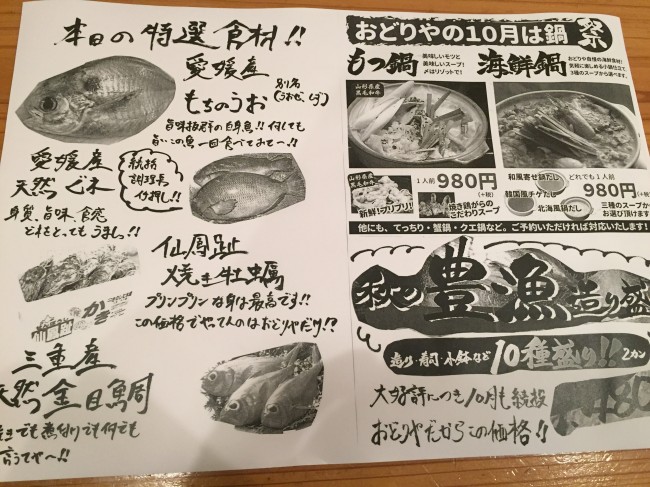 本日の特選食材!!
愛媛産
もちのうお
別名
旨味抜群の白身魚!!何しても
旨いこの魚一回食べておて〜!!
愛媛産
天然
統括
調理長
イチ押し!!
身質、旨味、食感
どれをとってもうまし!!
仙鳳趾
焼き牡蠣
プリンプリンな身は最高です!!
この価格でやってんのはおどりやだけ!?
かき
三重産
天然金目鯛
焼きでも煮付けでも何でも
言うてや〜!!
おどりやの10月は鍋祭
もつ鍋
美味しいモツと
美味しいスープ!
〆はリゾットで!
海鮮鍋
おどりや自慢の海鮮食材!
気軽に楽しめる小鍋仕立て
3種のスープから選べます。
山形県産
黒毛和牛
山形県産
黒毛和牛
新鮮!プリプリ!
1人前 980円
(+税)
焼き鶏がらの
こだわりスープ
和風寄せ鍋だし
韓国風チゲだし
北海風鍋だし
どれでも1人前
980円
(+税)
三種のスープから
お選び頂けます
他にも、てっちり・蟹鍋・クエ鍋など。ご予約いただければ対応いたします!
秋の豊漁造り盛
造り・寿司・小鉢など 10種盛り!! 2カン
大好評につき10月も続投
おどりやだからこの価格!!